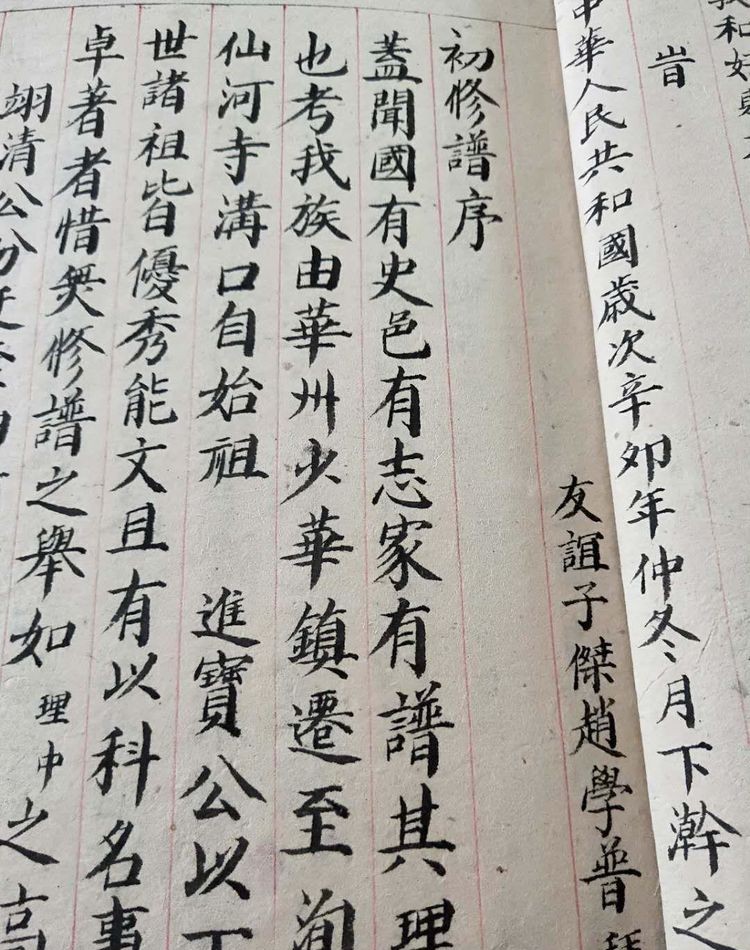 和好
旹
中華人民共和國歲次辛卯年仲冬月下澣之
友誼子傑趙學普
初修譜序
蓋聞國有史邑有志家有譜其理
也考我族由華州少華鎮遷至洵
仙河寺溝口自始祖 進寶公以下
世諸祖皆優秀能文且有以科名事
卓著者惜無修譜之舉如理中之高
翊清公分